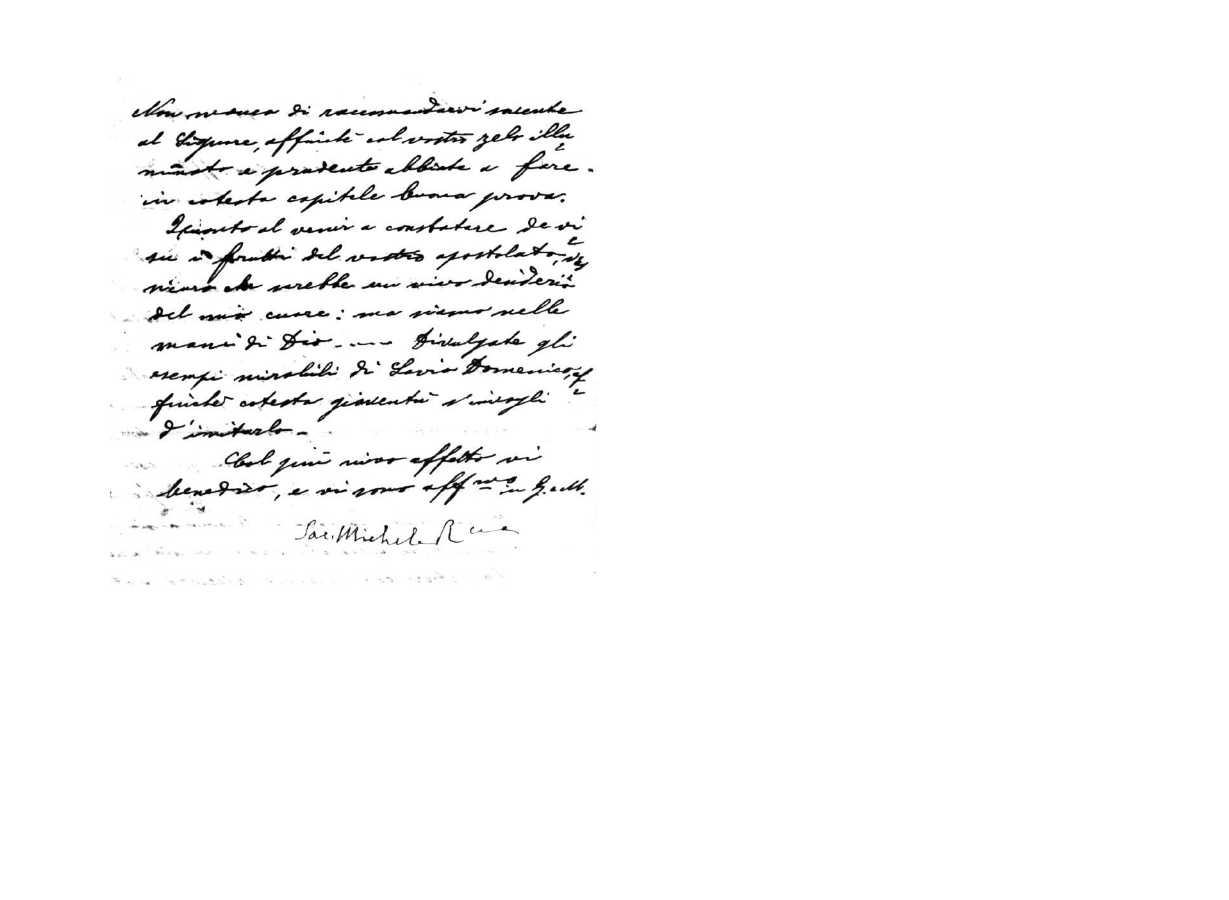 Non manco di raccomandarvi sovente
al Signore, affinchè col vostro zelo illu
minato e prudente abbiate a fare
in cotesta capitale buona prova.
Quanto al venir a constatare de vi
su i frutti del vostro apostolato,
che sarebbe un vivo desiderio
del mio cuore: ma siamo nelle
mani di Dio. Divulgate gli
esempi mirabili di Savio Domenico, af
finchè cotesta gioventù s'invogli
d'imitarlo.
Col più vivo affetto vi
benedico, e vi sono aff.mo in G. e M.
Sac. Michele Rua